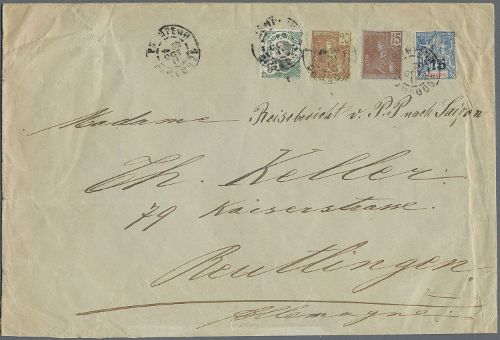 20 15 15
Madame Reisebericht v. P.P nach Saigon
Th. Keller
79 Kaiserstrasse
Reutlingen
Allemagne